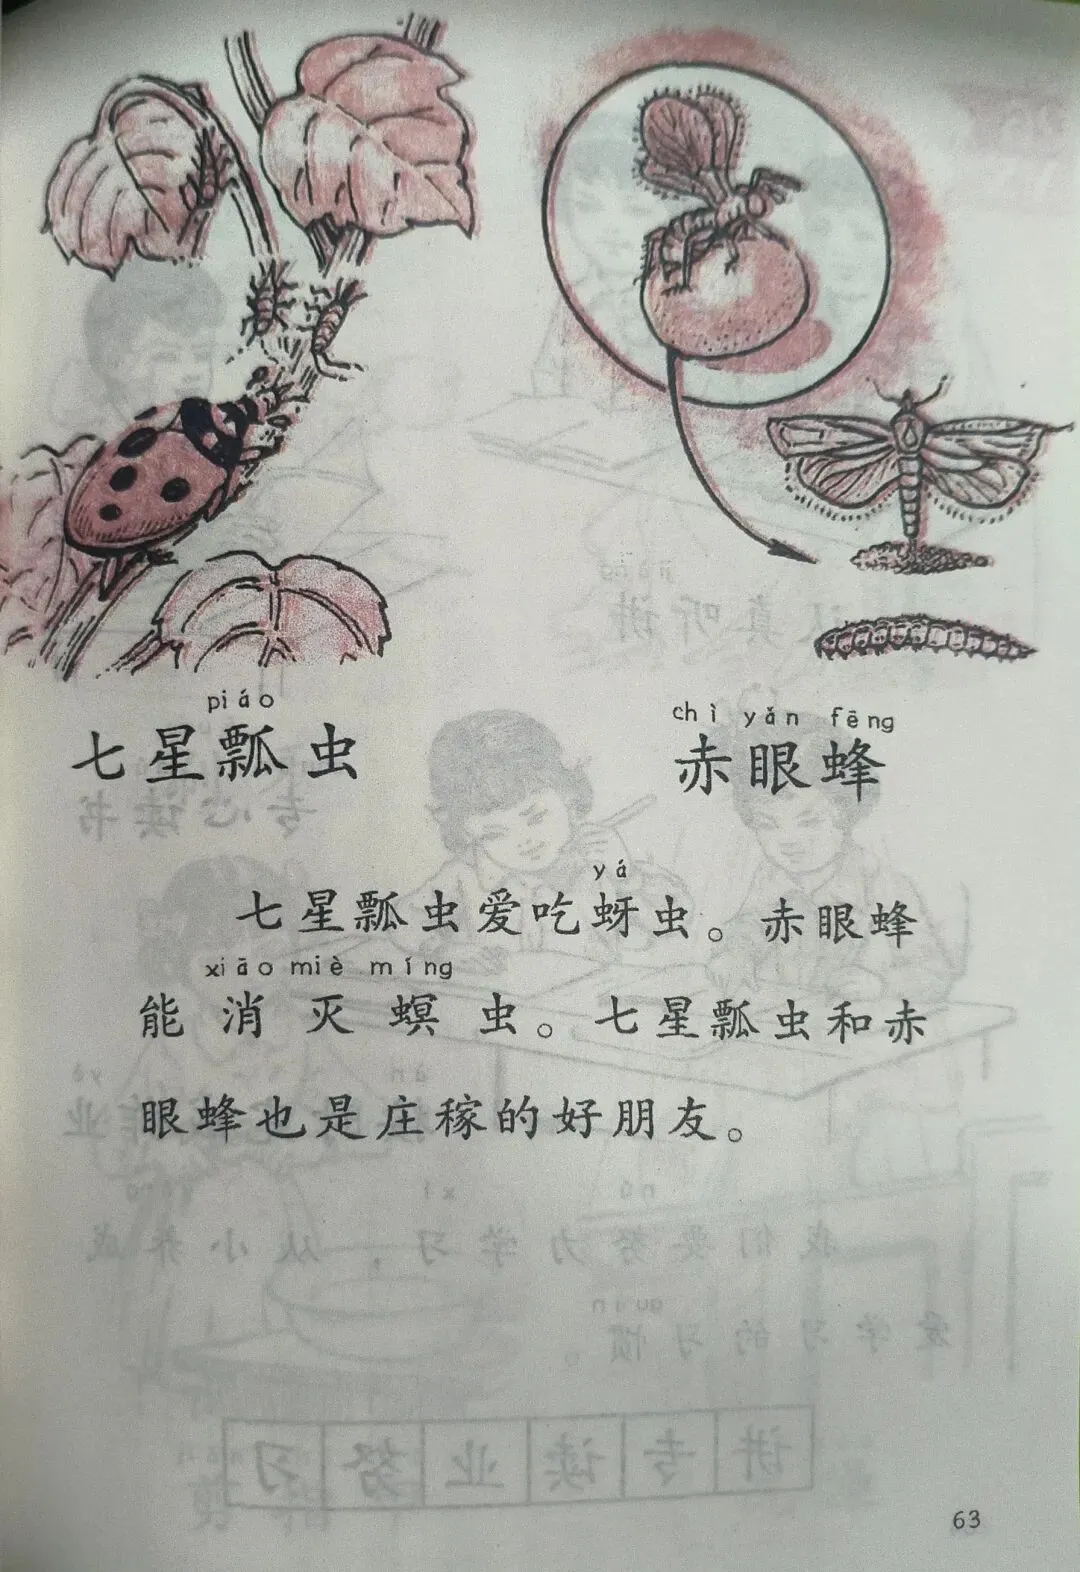 piáo
七星瓢虫
chì yǎn fēng
赤眼蜂
yá
七星瓢虫爱吃蚜虫。赤眼蜂
xiāo miè míng
能消灭螟虫。七星瓢虫和赤
眼蜂也是庄稼的好朋友。
63